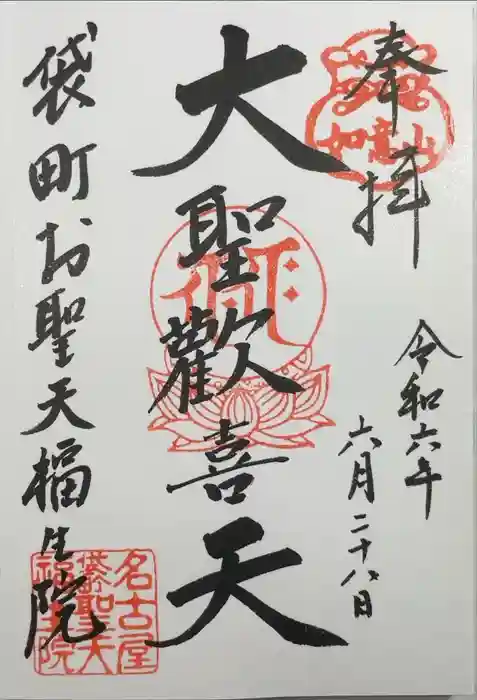 奉拝
如意山
令和六年
六月二十八日
大聖歓喜天
袋町お聖天福生院
名古屋
袋聖天
福生院